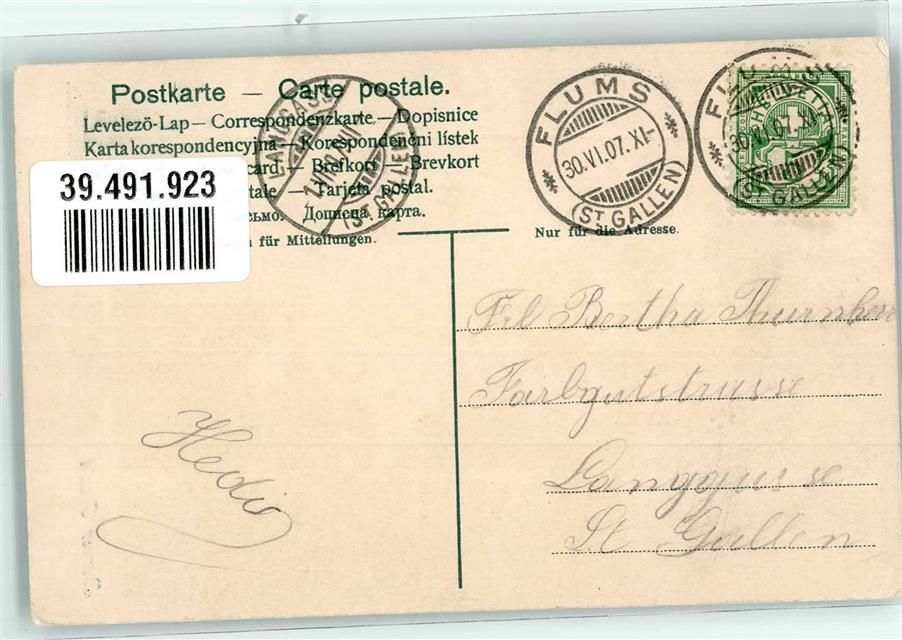 Postkarte — Carte postale.
Levelező-Lap — Correspondenzkarte — Dopisnice
Karta korespondencyjna — Korespondenční lístek
card — Brefkort — Brevkort
tale — Tarjeta postal.
сьмо. Дописна карта.
für Mitteilungen.
39.491.923
LANGGASSE
(ST. GALLEN)
FLUMS
30.VI.07.XI-
(ST. GALLEN)
FLUMS
30.VI.07.XI-
(ST. GALLEN)
HELVETIA
Nur für die Adresse.
Frl Bertha Thurnherr
Farbgutstrasse
Langgasse
St Gallen
Hedio